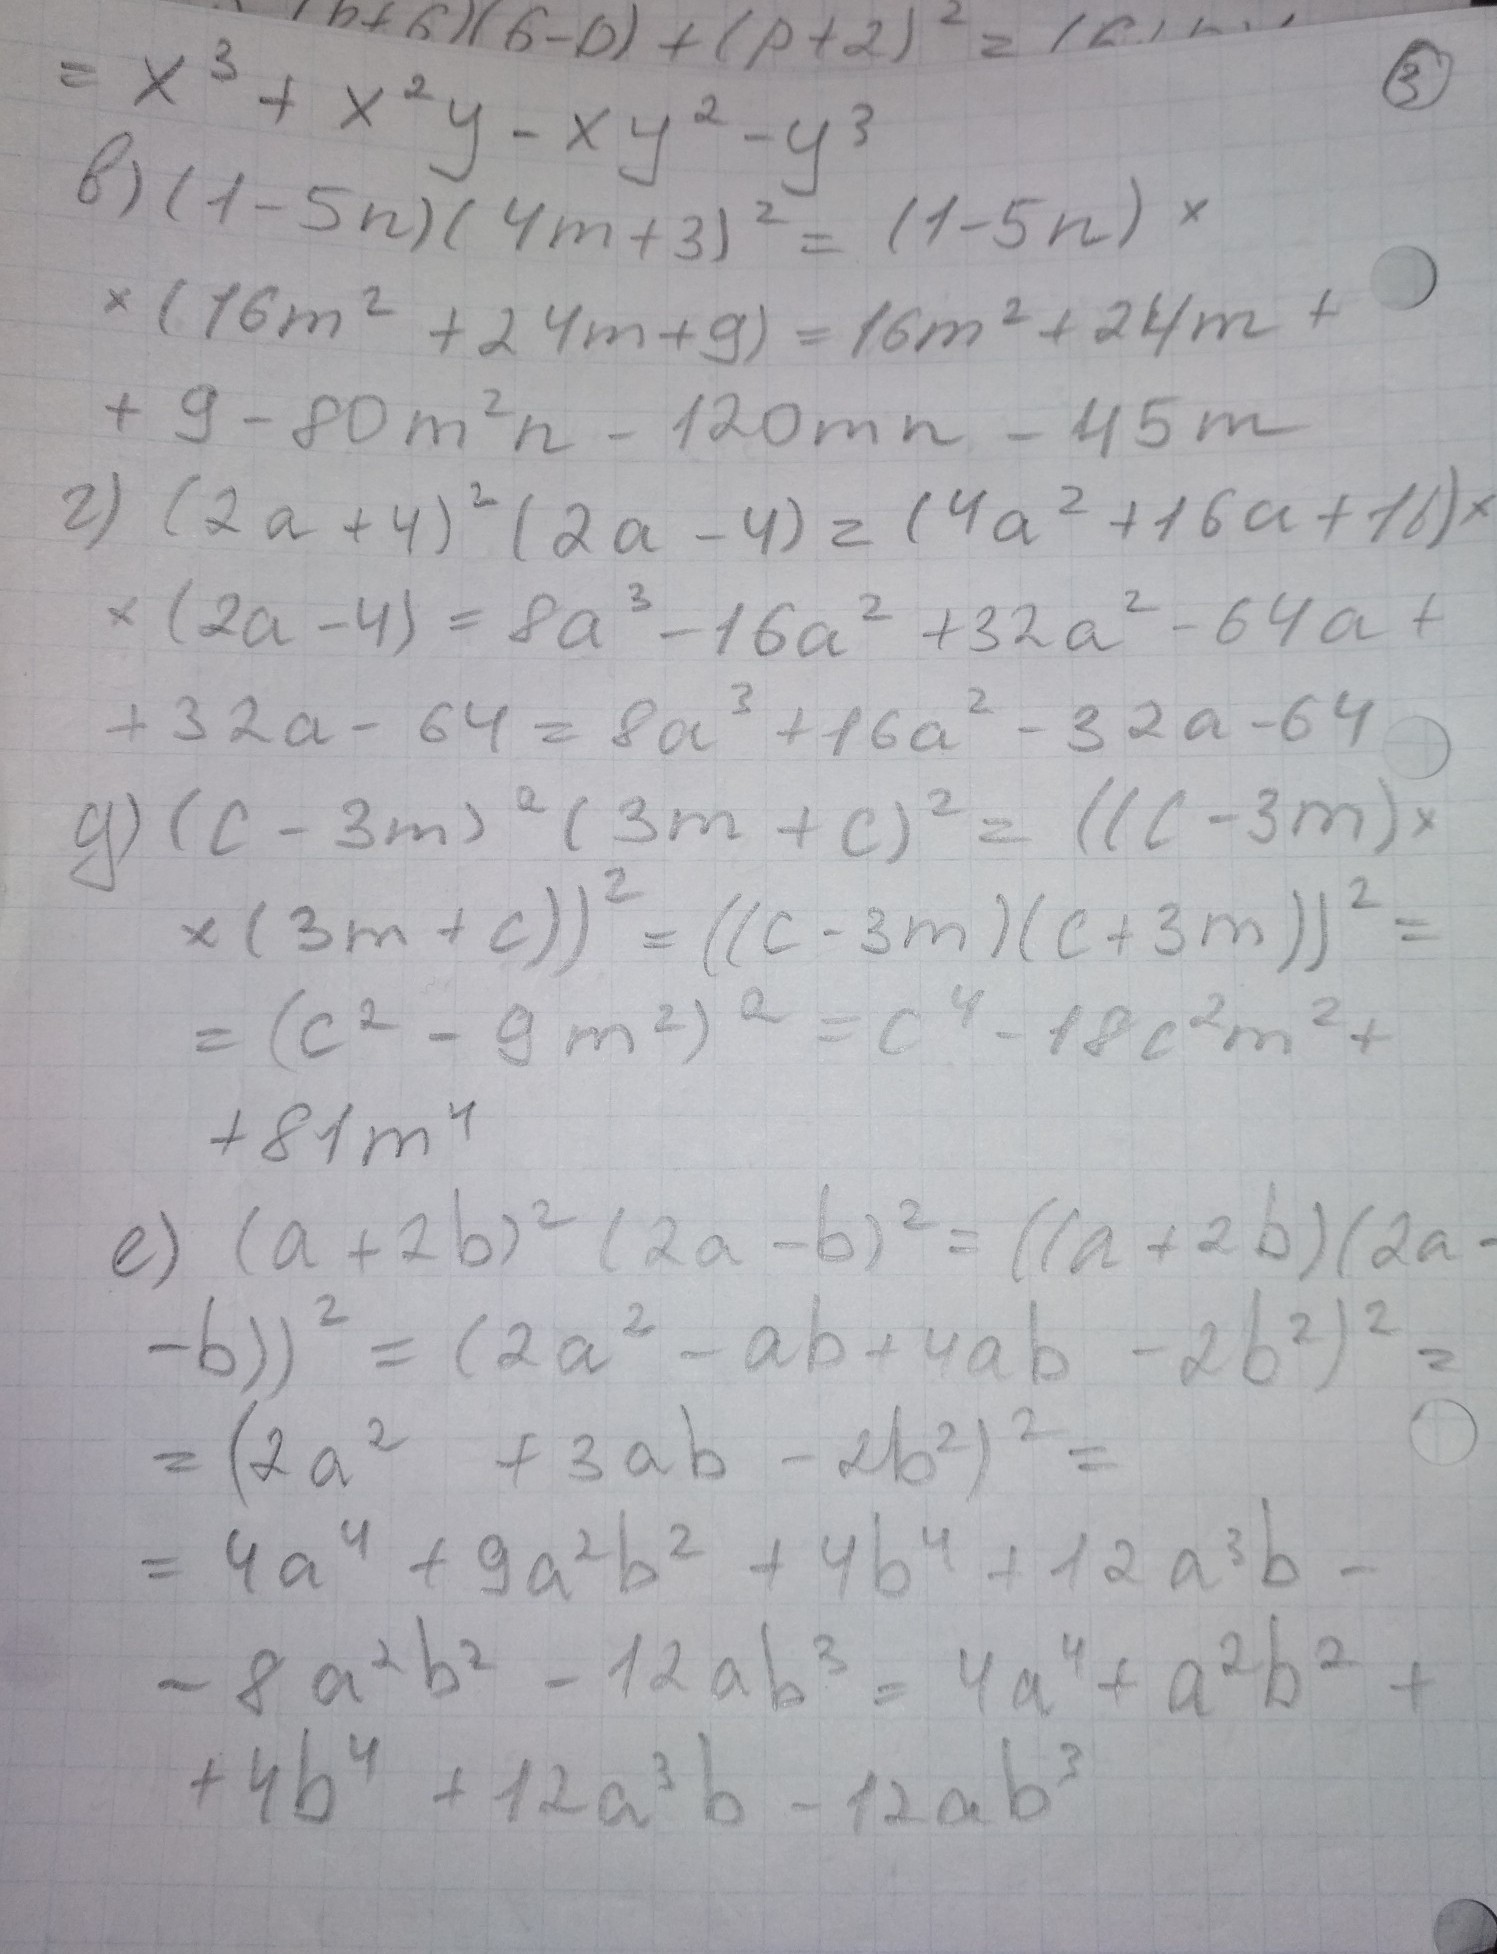 (p+6)(6-p)+(p+2)² =
③
= x³ + x²y - xy² - y³
в) (1-5n)(4m+3)² = (1-5n) ×
× (16m² + 24m + 9) = 16m² + 24m +
+ 9 - 80m²n - 120mn - 45m
г) (2a+4)² (2a-4) = (4a² + 16a + 16) ×
× (2a-4) = 8a³ - 16a² + 32a² - 64a +
+ 32a - 64 = 8a³ + 16a² - 32a - 64
д) (c-3m)² (3m+c)² = ((c-3m) ×
× (3m+c))² = ((c-3m)(c+3m))² =
= (c² - 9m²)² = c⁴ - 18c²m² +
+ 81m⁴
е) (a+2b)² (2a-b)² = ((a+2b)(2a-
-b))² = (2a² - ab + 4ab - 2b²)² =
= (2a² + 3ab - 2b²)² =
= 4a⁴ + 9a²b² + 4b⁴ + 12a³b -
- 8a²b² - 12ab³ = 4a⁴ + a²b² +
+ 4b⁴ + 12a³b - 12ab³